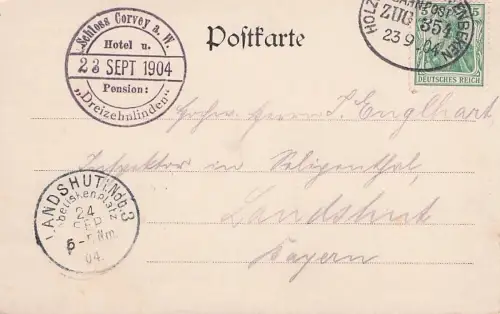 Schloss Corvey a. W.
Hotel u.
23 SEPT 1904
Pension:
„Dreizehnlinden"
Postkarte
BAHNPOST
ZUG 354
23 9 04
5
DEUTSCHES REICH
Herrn J. Englhart,
Inspektor in Seligenthal,
Landshut
Bayern
LANDSHUT I. Ndb. 3
24
SEP
04.